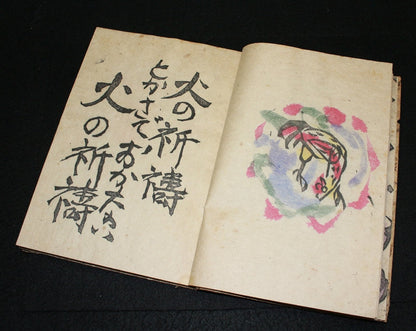 火の祈禱
とかさでおかない
火の祈禱